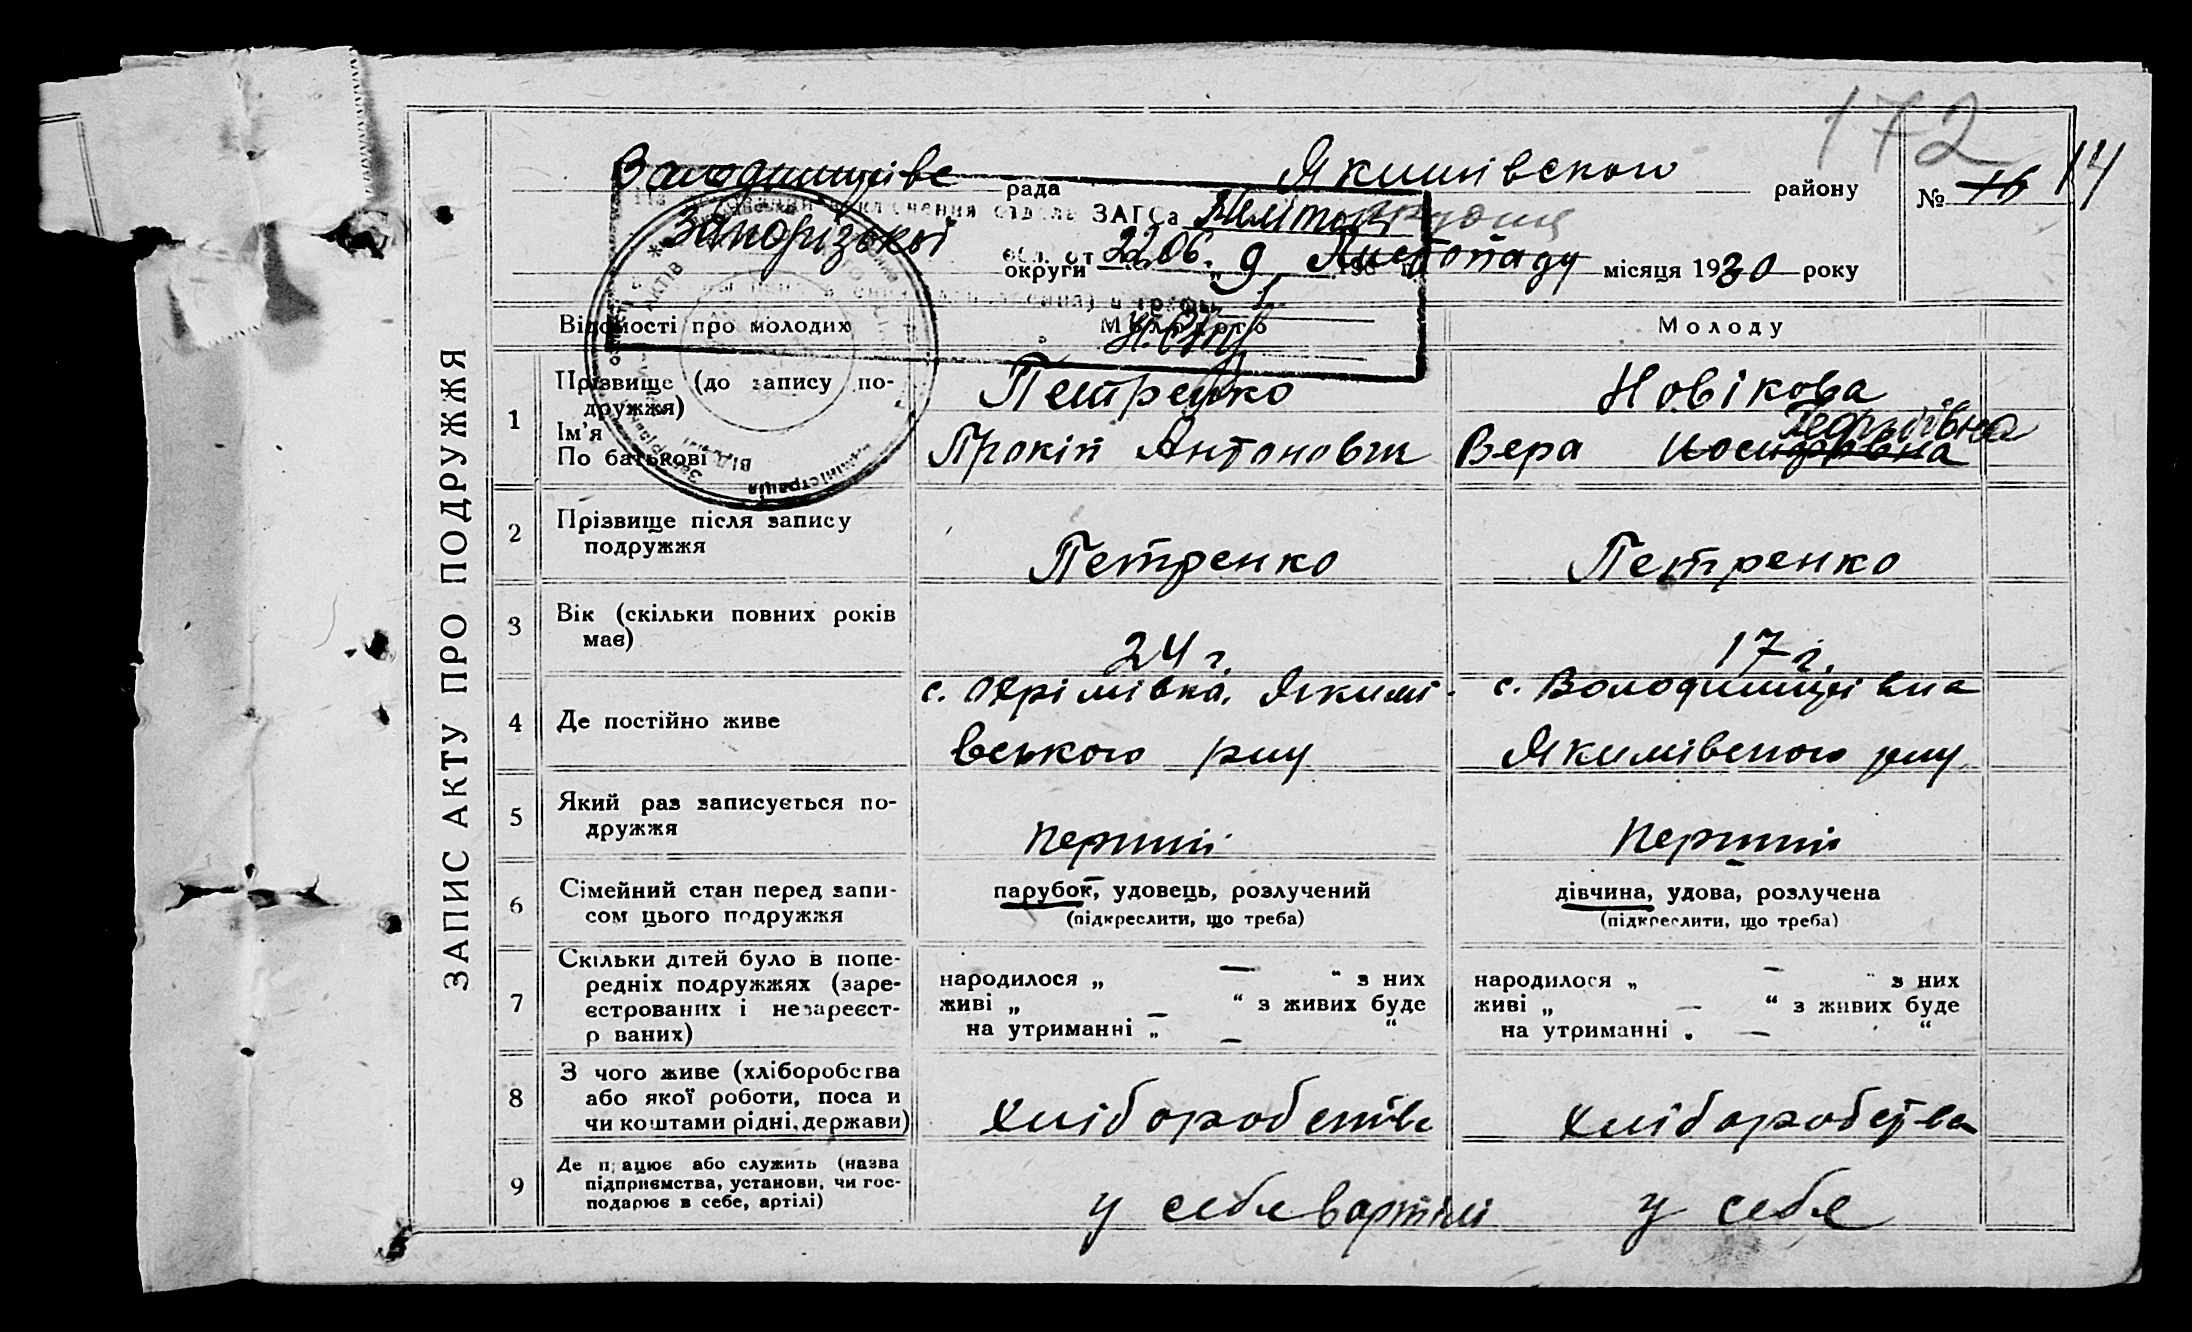 172
рада Якимівского району № 16 14
ЗАГСа
Запорізької округи 22.06. „ 9 Листопаду місяця 1930 року
ЗАПИС АКТУ ПРО ПОДРУЖЖЯ
Відомості про молодих Молодого Молоду
1 Прізвище (до запису по- Петренко Новікова
дружжя)
Ім'я Георгіївна
По батькові Прокіп Антонович Вера Иосифовна
2 Прізвище після запису
подружжя Петренко Петренко
3 Вік (скільки повних років
має) 24 г. 17 г.
4 Де постійно живе с. Охрімівка, Якимі- с. Володимирівка
вського р-ну Якимівского р-ну
5 Який раз записується по-
дружжя перший перший
6 Сімейний стан перед запи- парубок, удовець, розлучений дівчина, удова, розлучена
сом цього подружжя (підкреслити, що треба) (підкреслити, що треба)
7 Скільки дітей було в попе-
редніх подружжях (заре- народилося „ — “ з них народилося „ — “ з них
єстрованих і незареєст- живі „ — “ з живих буде живі „ — “ з живих буде
р ваних) на утриманні „ — “ на утриманні „ — “
8 З чого живе (хліборобства
або якої роботи, поса и хліборобство хліборобства
чи коштами рідні, держави)
9 Де працює або служить (назва
підприємства, установи, чи гос- у себе в артілі у себе
подарює в себе, артілі)